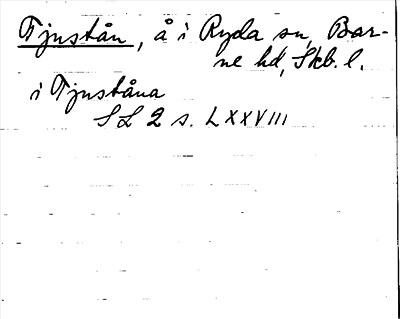 Tjustån, å i Ryda sn, Bar-
ne hd, Skb. l.
i Tjuståna
SL 2 s. LXXVIII